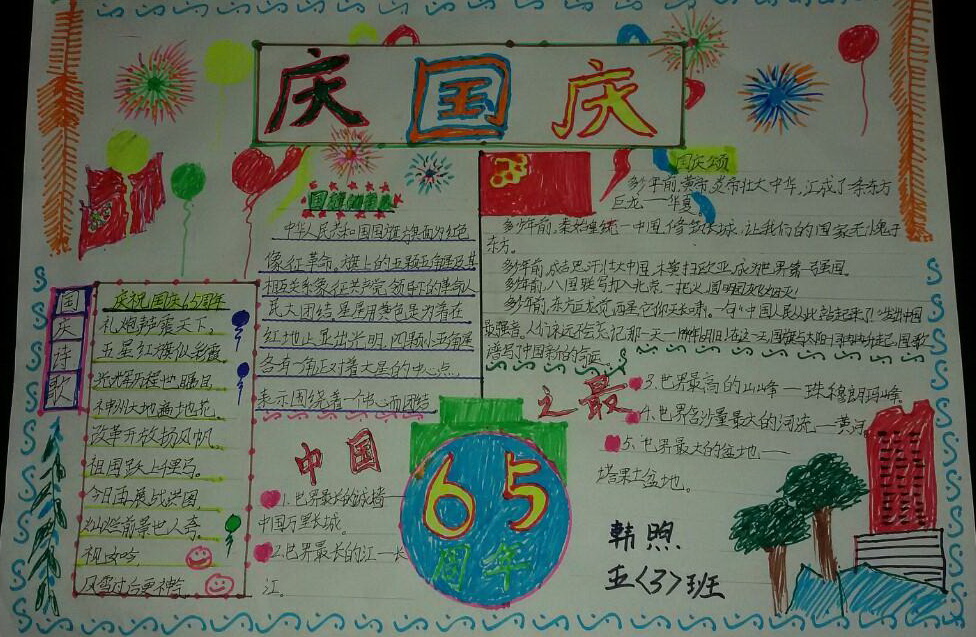 庆国庆
国旗的意义
中华人民共和国国旗旗面为红色
像征革命。旗上的五颗五角星及其
相互关系象征共产党领导下的革命人
民大团结。星星用黄色是为着在
红地上显出光明，四颗小五角星
各有一角正对着大星的中心点。
表示围绕着一个中心而团结
国庆颂
多少年前，黄帝炎帝壮大中华，汇成了一条东方
巨龙——华夏
多少年前，秦始皇统一中国，修筑长城，让我们的国家无愧于
东方。
多少年前，成吉思汗壮大中国，横扫欧亚，成为世界第一强国。
多少年前，八国联写打入北京，一把火圆明园
多少年前，东方巨龙
最强者。人们永远
谱写中国新的
国庆诗歌
庆祝国庆65周年
礼炮声震天下，
五星红旗似彩霞
光辉历程
神州大地遍地花，
改革开放扬风帆，
祖国跃上千里马。
今日再展战洪图，
灿烂前景世人夸。
祝
风雪过后更神
中国
之最
1.世界最长的城墙——
中国万里长城
2.世界最长的江——长
江。
3.世界最高的山峰——珠穆朗玛峰
4.世界含沙量最大的河流——黄河
5.世界最大的盆地——
塔里木盆地。
65
周年
韩煦
五〈3〉班